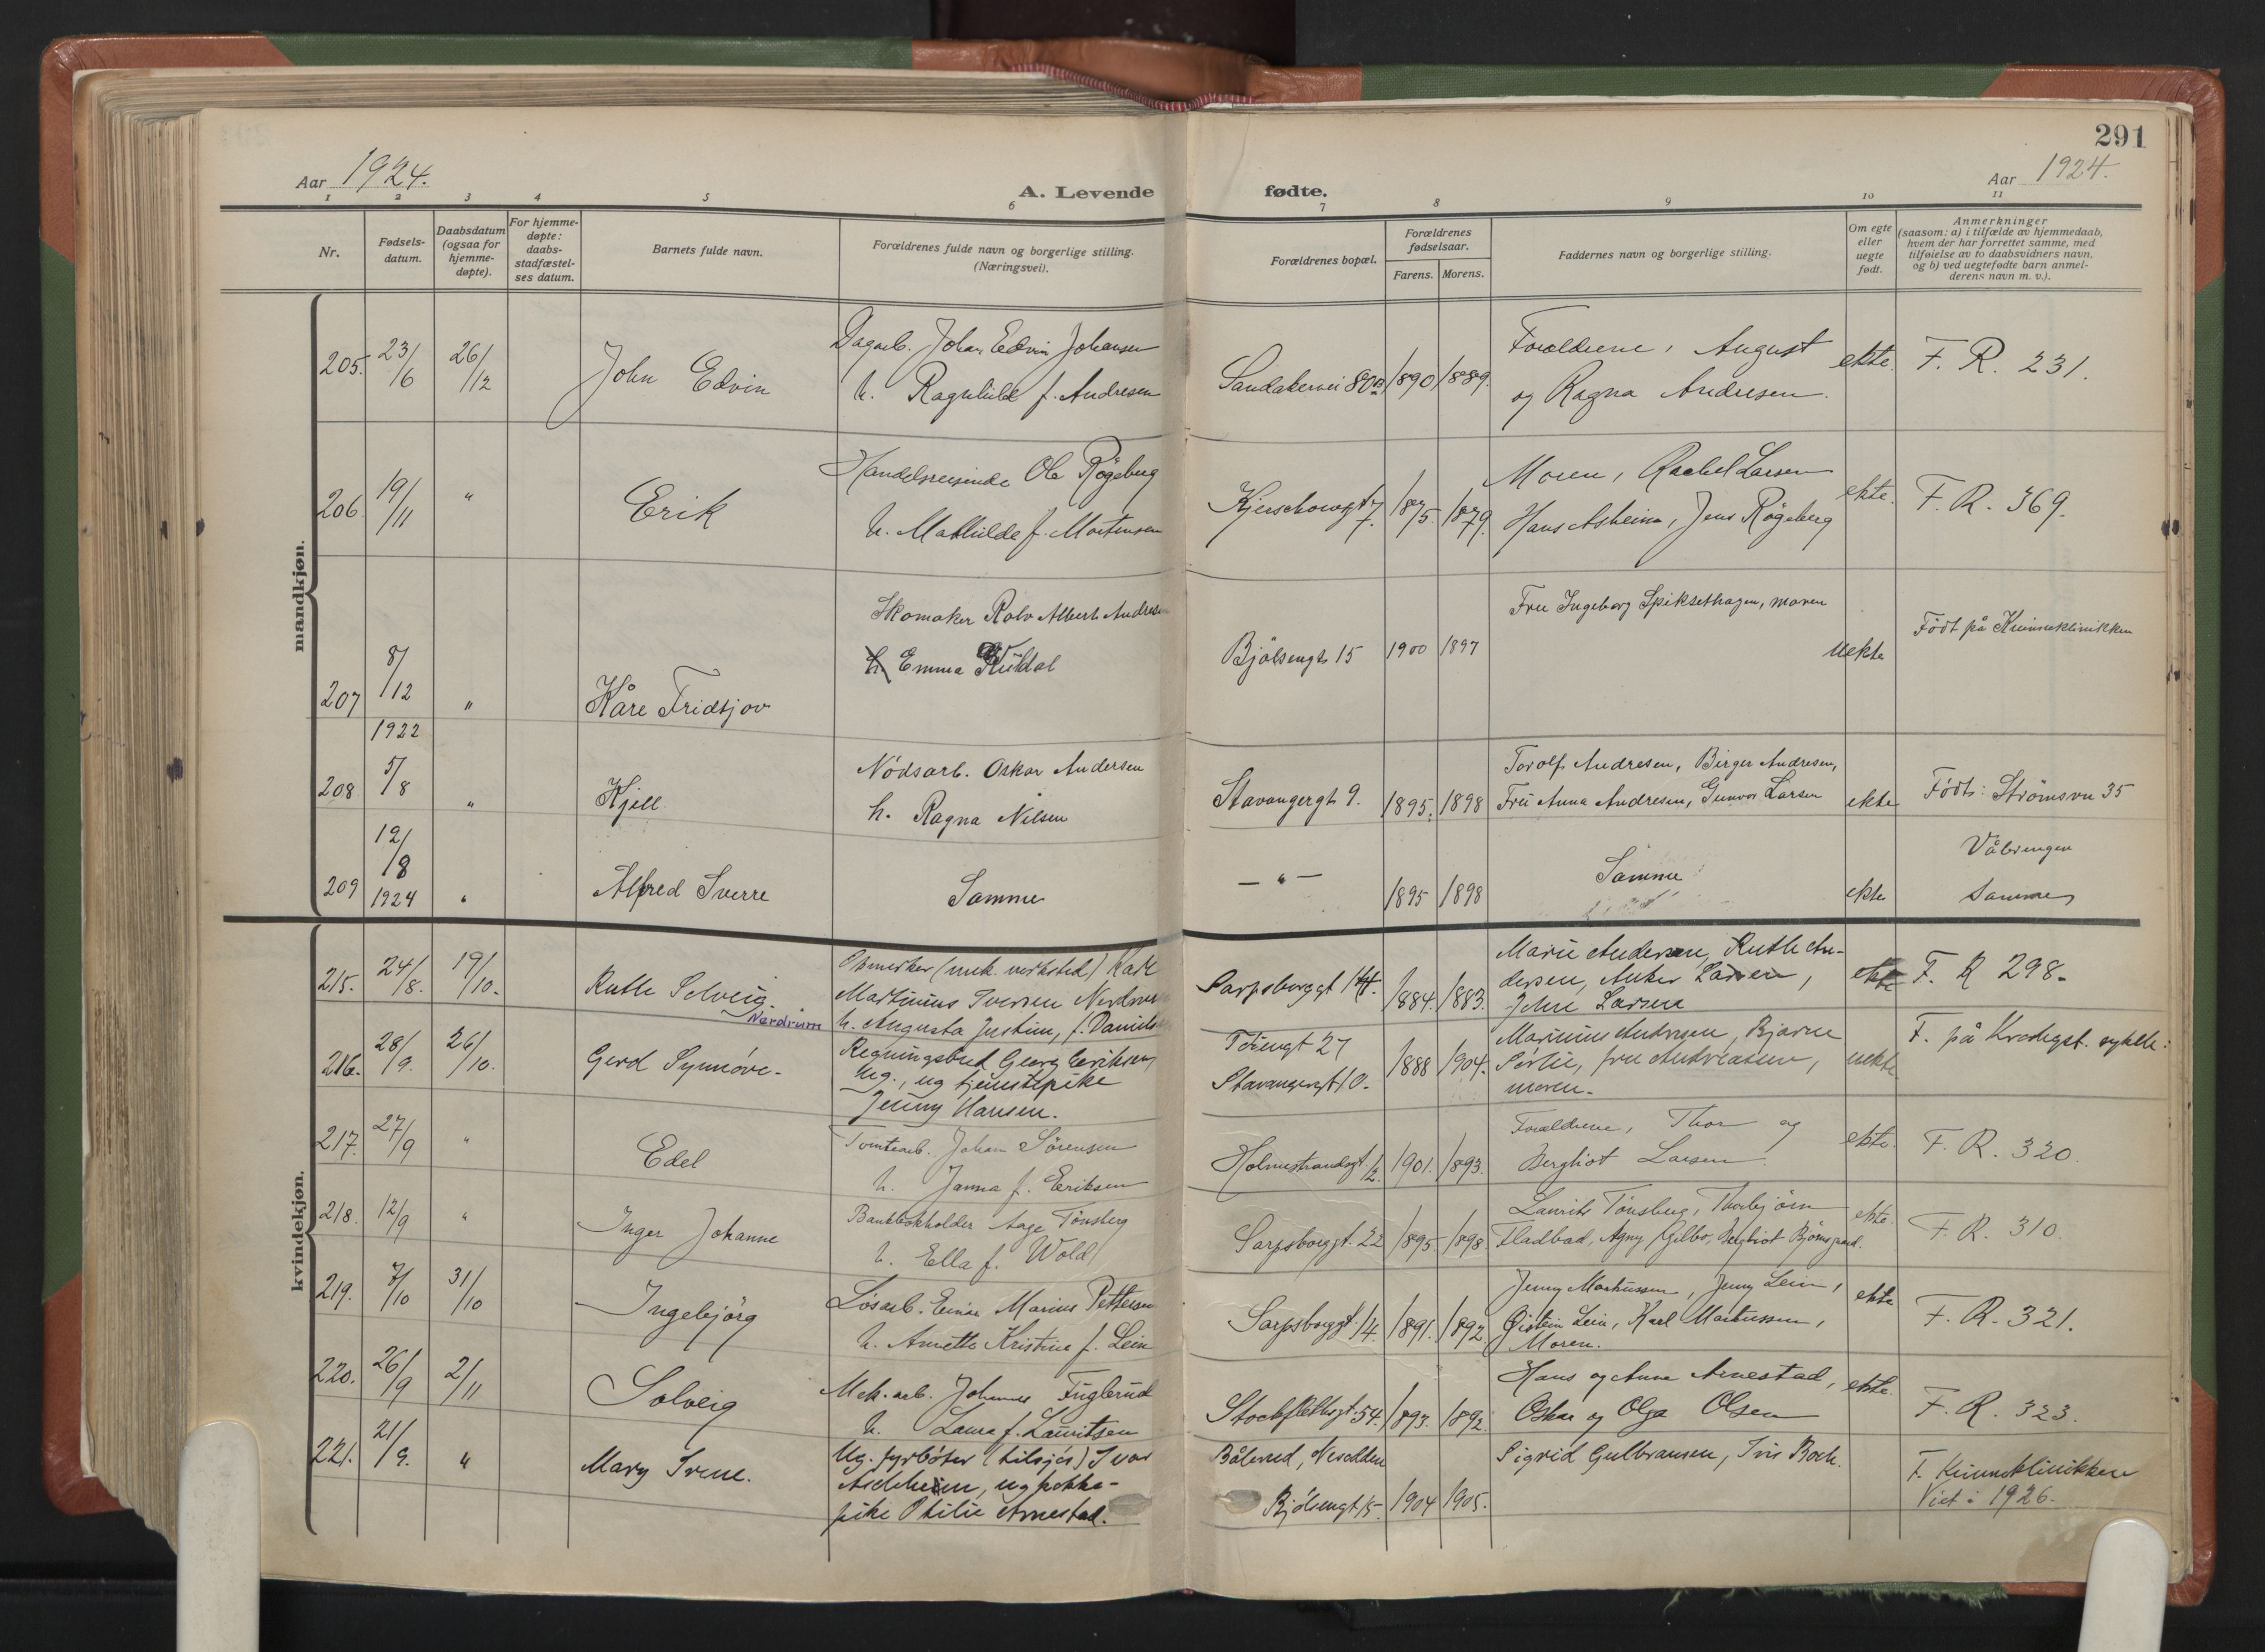 291
Aar 1924.
A. Levende fødte.
Aar 1924.
1 2 3 4 5 6 7 8 9 10 11
Nr.
Fødsels-
datum.
Daabsdatum
(ogsaa for
hjemme-
døpte).
For hjemme-
døpte:
daabs-
stadfæstel-
ses datum.
Barnets fulde navn.
Forældrenes fulde navn og borgerlige stilling.
(Næringsvei).
Forældrenes bopæl.
Forældrenes
fødselsaar.
Farens. Morens.
Faddernes navn og borgerlige stilling.
Om egte
eller
uegte
født.
Anmerkninger
(saasom: a) i tilfælde av hjemmedaab,
hvem der har forrettet samme, med
tilføielse av to daabsvidners navn,
og b) ved uegtefødte barn anmel-
derens navn m. v.).
mandkjøn.
205. 23/6 26/12
John Edvin
Dagarb. Johan Edvin Johansen
h. Ragnhild f. Andresen
Sandakervei 80B 1890 1889.
Forældrene, August
og Ragna Andresen.
ekte. F. R. 231.
206. 19/11 "
Erik
Handelsreisende Ole Røgeberg
h. Mathilde f. Mortensen
Kjerschowsgt 7. 1875. 1879.
Moren, Rachel Larsen
Hans Asheim, Jens Røgeberg
ekte. F. R. 369.
207 8/12 "
1922
Kåre Fridtjov
Skomaker Rolv Albert Andresen
h. Emma
Bjølsengt 15 1900 1897
Fru Ingeborg Spiksethagen, moren
Uekte
Født på Kvinneklinikken
208 5/8 "
Kjell
Nødsarb. Oskar Andersen
h. Ragna Nilsen
Stavangergt 9. 1895. 1898
Torolf Andresen, Birger Andresen,
Fru Anna Andresen, Gunvor Larsen
ekte Født: Strømsvn 35
Vålerengen
209 12/8 "
1924
Alfred Sverre
Samme
— " — 1895 1898
Samme
ekte Samme
kvindekjøn.
215. 24/8. 19/10.
Ruth Solveig.
Nordrum
(mek. verksted) Karl
Martinius Iversen
h. Augusta Justine, f. Daniels
Sarpsborggt 14. 1884. 1883.
Marie Andersen, Ruth An-
dersen, Anker Larsen,
John Larsen
ekte F. R 298.
216. 28/9. 26/10.
Gerd Synnøve.
Regningsbud Georg Eriksen,
ug., ug tjenestepike
Jenny Hansen.
27
Stavangergt 10. 1888 1904.
Marinius Andresen, Bjarne
Sørlie, fru Andreasen,
moren.
uekte
F. på Krohgst. sykeh:
217. 27/9 "
Edel
Tomtearb. Johan Sørensen
h. Janna f. Eriksen
Holmestrandgt 1/2 1901. 1893.
Forældrene, Thor og
Bergliot Larsen.
ekte. F. R. 320.
218. 12/9 "
Inger Johanne
Bankbokholder Aage Tønsberg
h. Ella f. Wold
Sarpsborggt. 22 1895. 1898.
Laurits Tønsberg, Thorbjørn
Fladbad, Agny Gilbo, Bergliot Bjørnsgaard.
ekte. F. R. 310.
219. 7/10 31/10
Ingebjörg
Løsarb. Einar Marius Pettersen
h. Annette Kristine f. Lein
Sarpsborggt. 14. 1891. 1892.
Jenny Markussen, Jenny Lein,
Øistein Lein, Karl Markussen,
Moren.
ekte F. R. 321.
220. 26/9 2/11
Solveig
Mek. arb. Johannes Fuglerud
h. Laura f. Lauritsen
Stockflethsgt. 54. 1893. 1892.
Hans og Anna Arnestad,
Oskar og Olga Olsen
ekte. F. R. 323.
221. 21/9. "
Mary Irene.
Ug. fyrbøter (tilsjøs) Ivar
ug kokke-
pike Otilie Arnestad.
Bålerud, Nesodden
Bjølsengt 15. 1904 1905.
Sigrid Gulbransen, Iris Bock.
F. Kvinneklinikken
Viet i 1926.